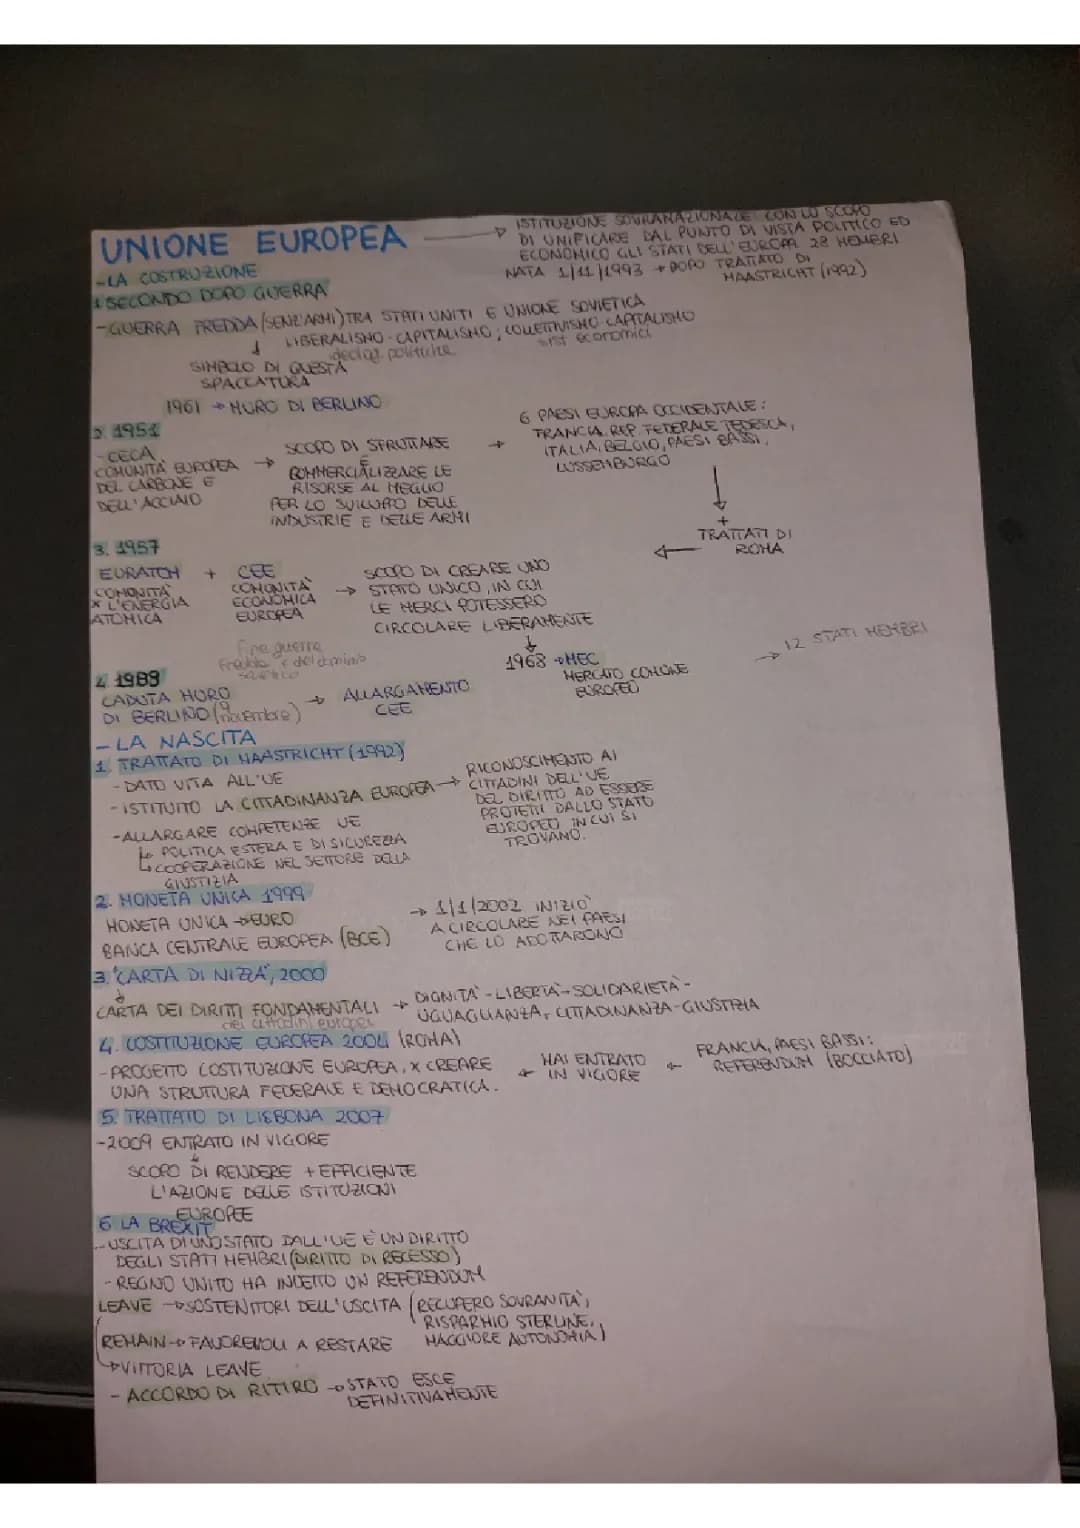 UNIONE EUROPEA → ISTITUZIONE SOVRANAZIONALE CON LO SCOPO
DI UNIFICARE DAL PUNTO DI VISTA POLITICO ED
ECONOMICO GLI STATI DELL'EUROPA 28 MEMBRI
NATA 1/11/1993 → DOPO TRATTATO DI
MAASTRICHT (1992)
-LA COSTRUZIONE
1 SECONDO DOPO GUERRA
-GUERRA FREDDA (SENZ'ARMI) TRA STATI UNITI E UNIONE SOVIETICA
LIBERALISMO-CAPITALISMO; COLLETTIVISMO-CAPITALISMO
ideolog. politiche
sist economici
↓
SIMBOLO DI QUESTA
SPACCATURA
1961 → MURO DI BERLINO
2. 1951
-CECA
COMUNITÀ EUROPEA
DEL CARBONE E
DELL'ACCIAIO
→ SCOPO DI SFRUTTARE
E
COMMERCIALIZZARE LE
RISORSE AL MEGLIO
PER LO SVILUPPO DELLE
INDUSTRIE E DELLE ARMI
→ 6 PAESI EUROPA OCCIDENTALE:
FRANCIA, REP. FEDERALE TEDESCA,
ITALIA, BELGIO, PAESI BASSI,
LUSSEMBURGO
↓
+
TRATTATI DI
ROMA
←
3. 1957
EURATOM + CEE
COMUNITÀ
x L'ENERGIA
ATOMICA
COMUNITÀ
ECONOMICA
EUROPEA
→ SCOPO DI CREARE UNO
STATO UNICO, IN CUI
LE MERCI POTESSERO
CIRCOLARE LIBERAMENTE
↓
1968 → MEC
MERCATO COMUNE
EUROPEO
→ 12 STATI MEMBRI
fine guerra
fredda e del dominio
sovietico
4 1989
CADUTA MURO
DI BERLINO (9 novembre)
→ ALLARGAMENTO
CEE
- LA NASCITA
1. TRATTATO DI MAASTRICHT (1992)
- DATO VITA ALL'UE
- ISTITUITO LA CITTADINANZA EUROPEA → RICONOSCIMENTO AI
CITTADINI DELL'UE
DEL DIRITTO AD ESSERE
PROTETTI DALLO STATO
EUROPEO IN CUI SI
TROVANO.
-ALLARGARE COMPETENZE UE
↳ POLITICA ESTERA E DI SICUREZZA
↳ COOPERAZIONE NEL SETTORE DELLA
GIUSTIZIA
2. MONETA UNICA 1999
MONETA UNICA → EURO
BANCA CENTRALE EUROPEA (BCE)
→ 1/1/2002 INIZIÒ
A CIRCOLARE NEI PAESI
CHE LO ADOTTARONO
3. "CARTA DI NIZZA", 2000
↓
CARTA DEI DIRITTI FONDAMENTALI → DIGNITÀ - LIBERTÀ - SOLIDARIETÀ -
UGUAGLIANZA, CITTADINANZA-GIUSTIZIA
dei cittadini europei
4. COSTITUZIONE EUROPEA 2004 (ROMA)
-PROGETTO COSTITUZIONE EUROPEA, x CREARE
UNA STRUTTURA FEDERALE E DEMOCRATICA.
← MAI ENTRATO
IN VIGORE
← FRANCIA, PAESI BASSI:
REFERENDUM (BOCCIATO)
5. TRATTATO DI LISBONA 2007
-2009 ENTRATO IN VIGORE
↓
SCOPO DI RENDERE + EFFICIENTE
L'AZIONE DELLE ISTITUZIONI
EUROPEE
6 LA BREXIT
- USCITA DI UNO STATO DALL'UE È UN DIRITTO
DEGLI STATI MEMBRI (DIRITTO DI RECESSO)
- REGNO UNITO HA INDETTO UN REFERENDUM
LEAVE → SOSTENITORI DELL'USCITA (RECUPERO SOVRANITÀ,
RISPARMIO STERLINE,
MAGGIORE AUTONOMIA)
REMAIN → FAVOREVOLI A RESTARE
→ VITTORIA LEAVE
- ACCORDO DI RITIRO → STATO ESCE
DEFINITIVAMENTE